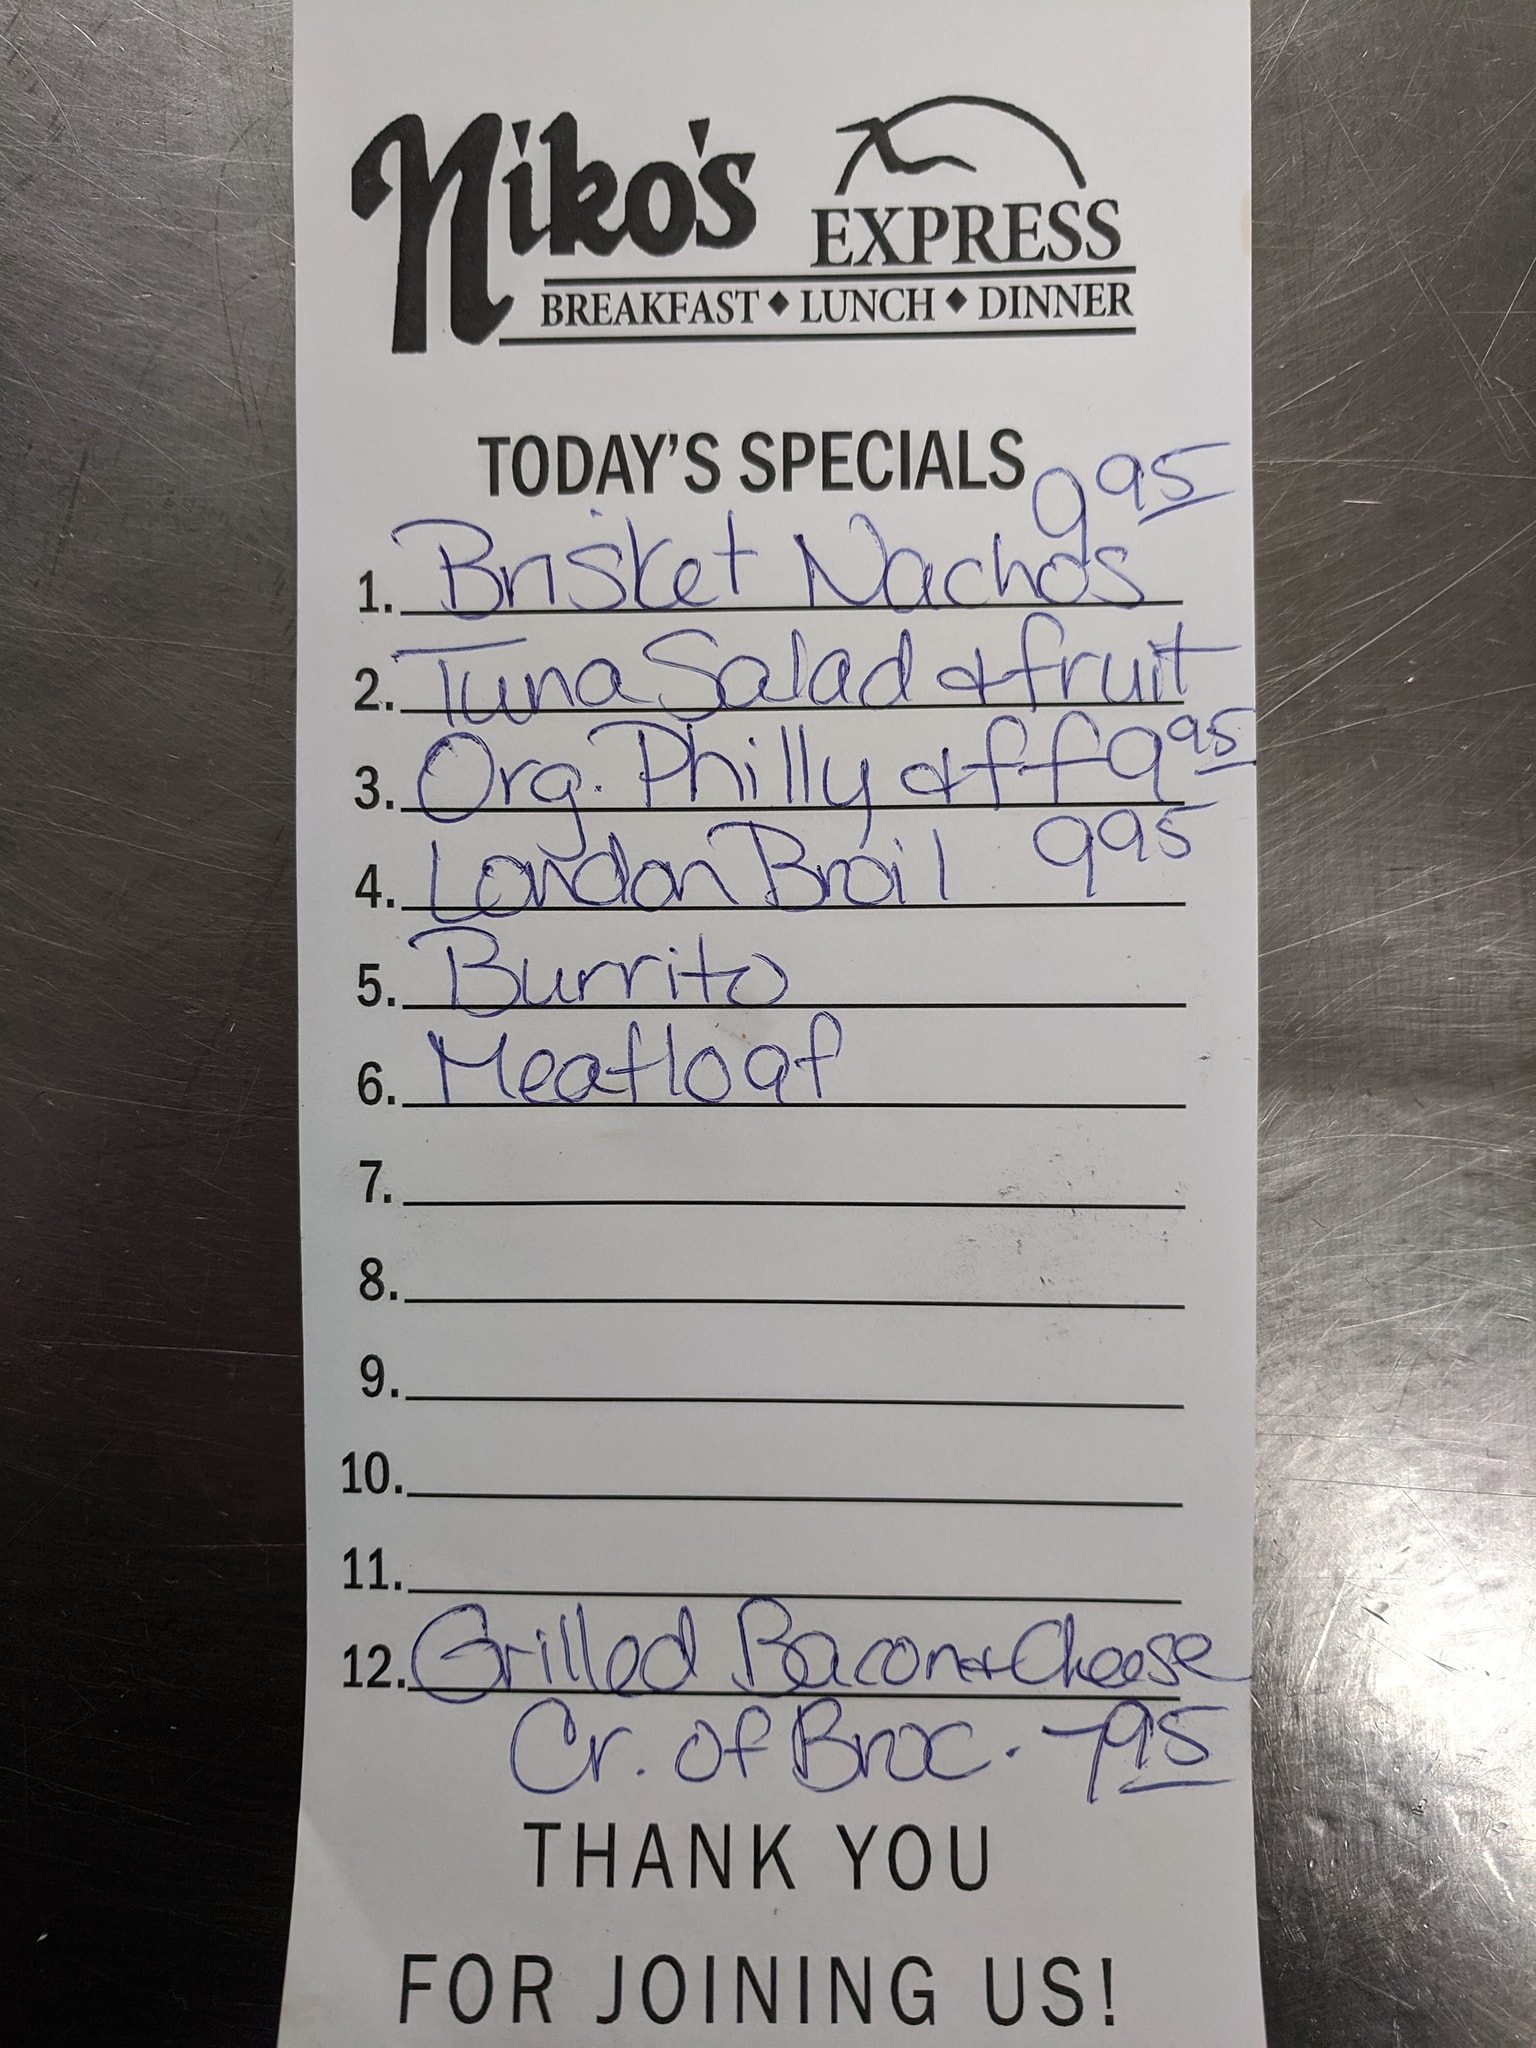 Niko's EXPRESS
BREAKFAST ◆ LUNCH ◆ DINNER
TODAY'S SPECIALS
1. Brisket Nachos 9 95
2. Tuna Salad & fruit
3. Org. Philly & ff 9 95
4. London Broil 9 95
5. Burrito
6. Meatloaf
7.
8.
9.
10.
11.
12. Grilled Bacon & Cheese
Cr. of Broc. 7 95
THANK YOU
FOR JOINING US!